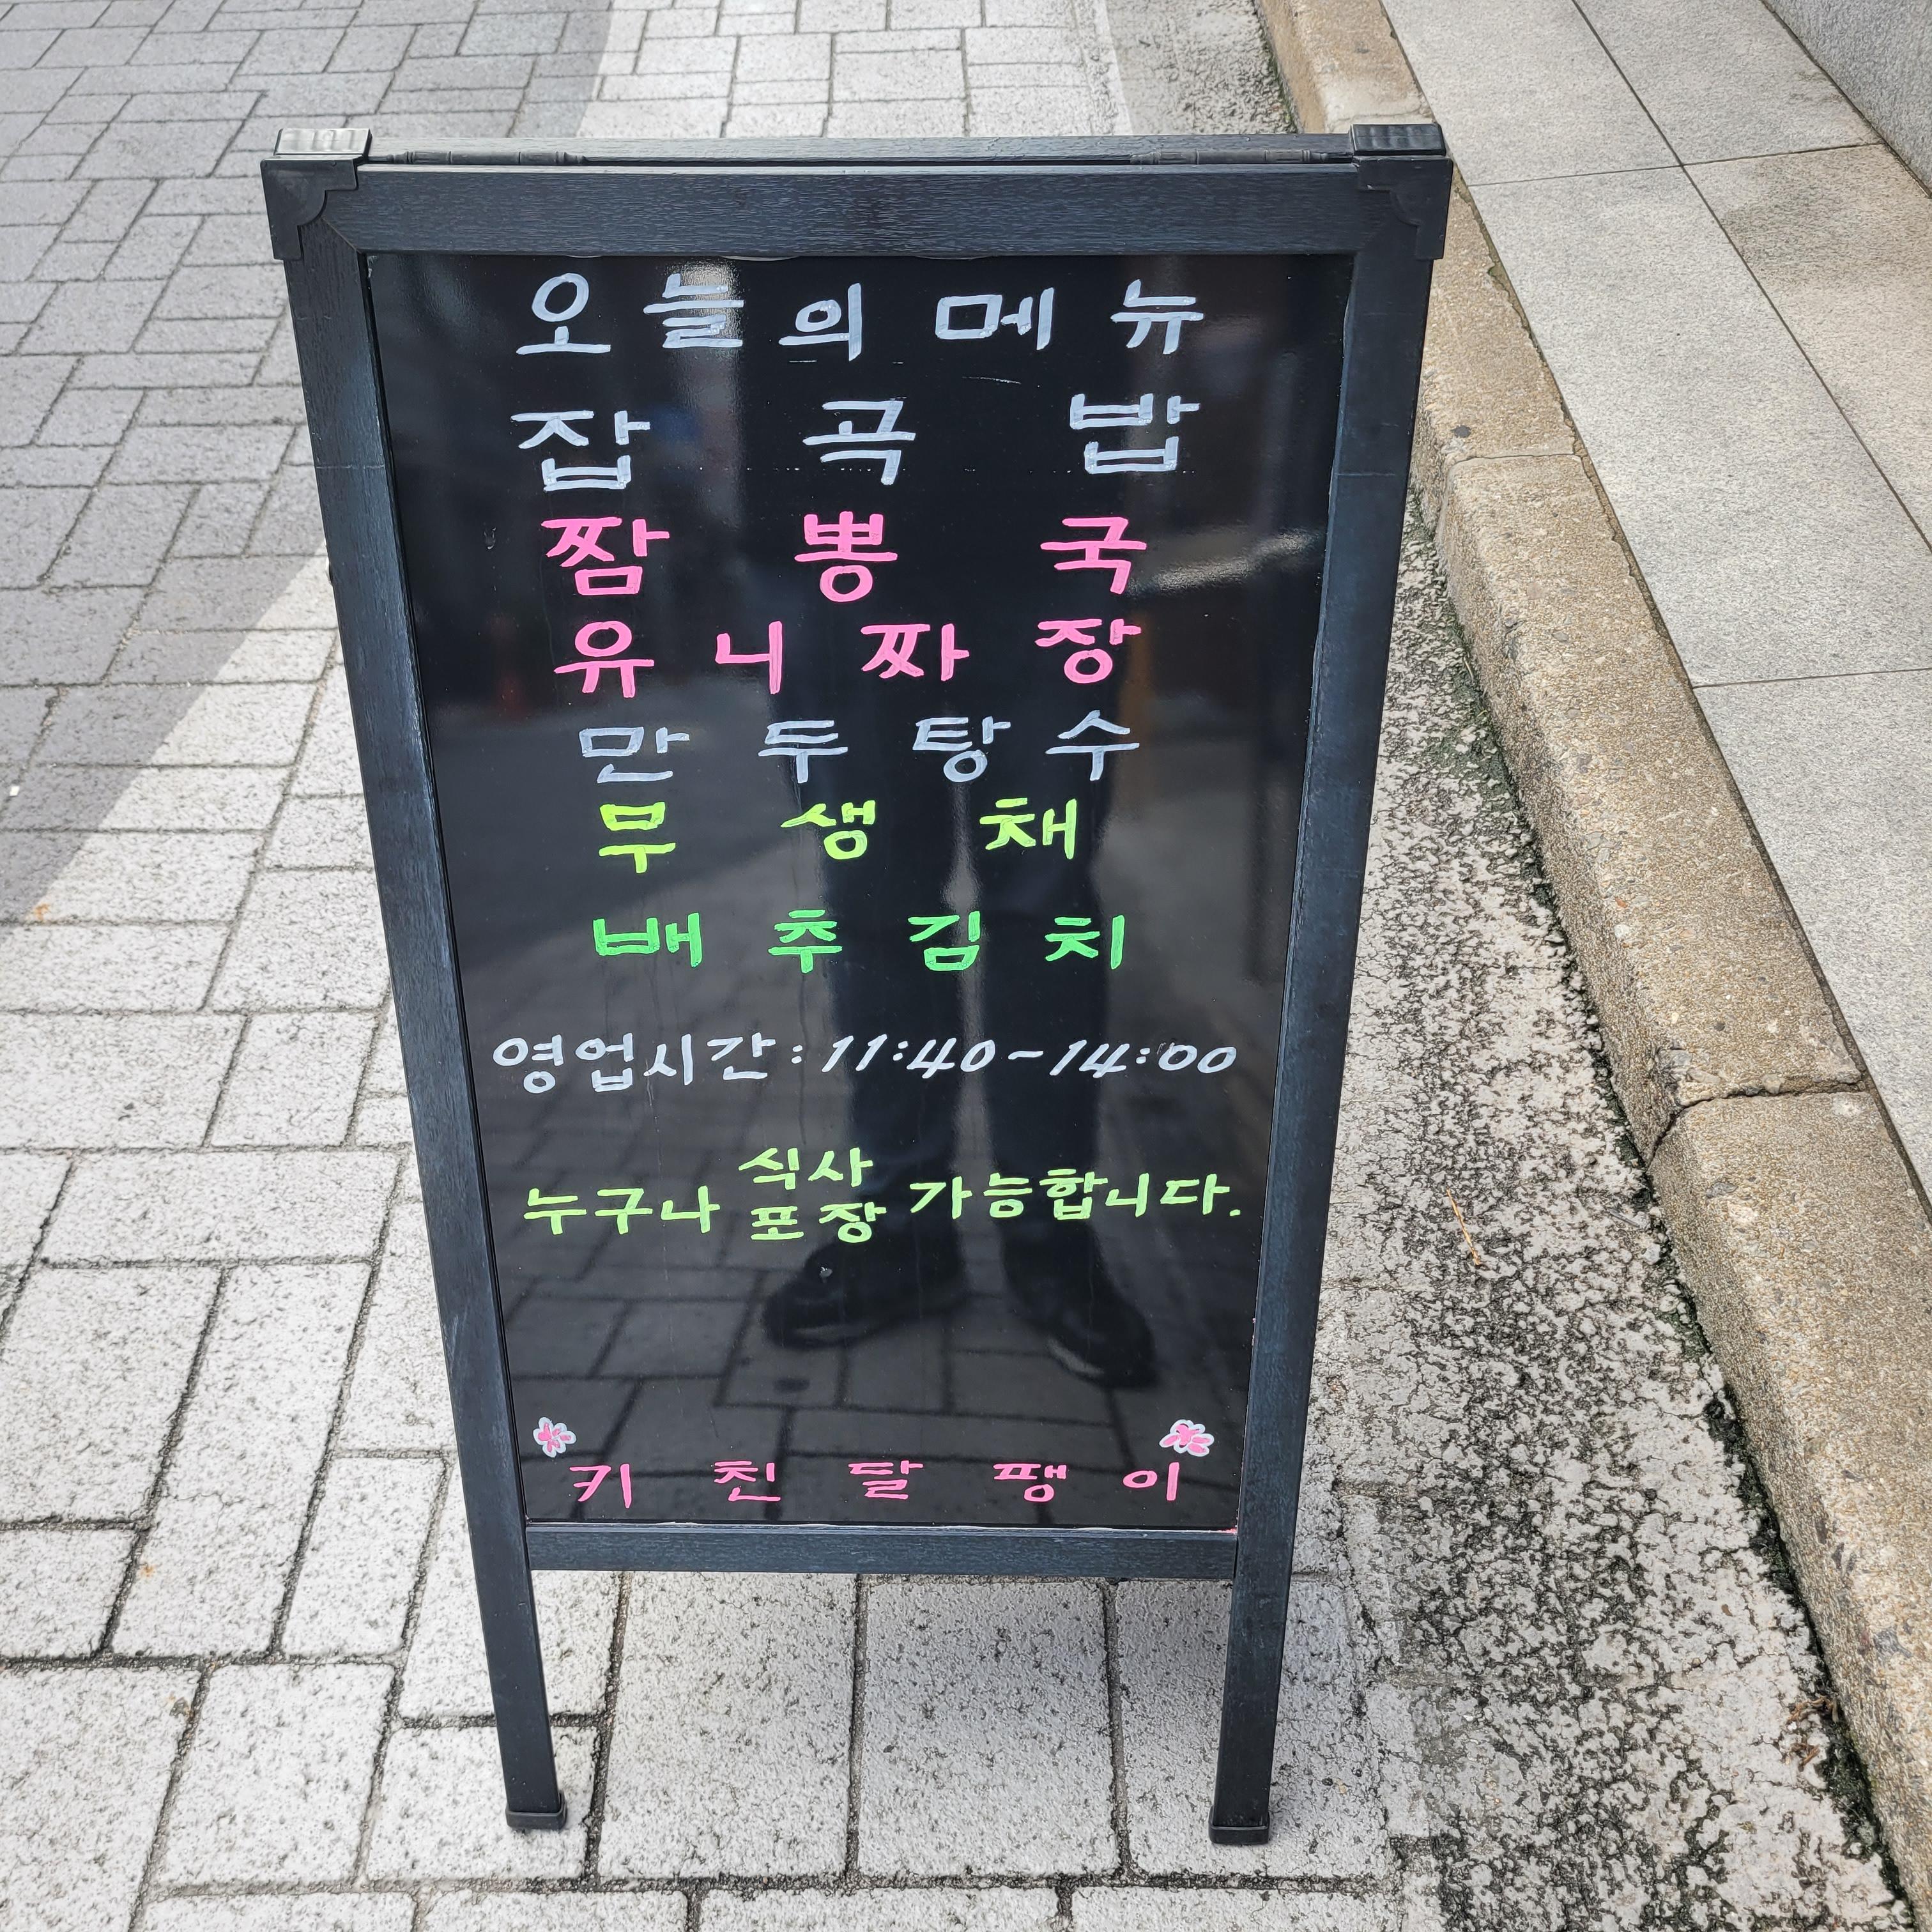 오늘의 메뉴
잡곡밥
짬뽕국
유니짜장
만두탕수
무생채
배추김치
영업시간:11:40~14:00
누구나 식사 포장 가능합니다.
키친달팽이